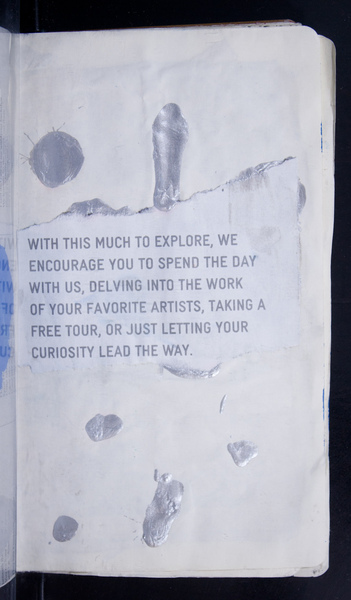 WITH THIS MUCH TO EXPLORE, WE
ENCOURAGE YOU TO SPEND THE DAY
WITH US, DELVING INTO THE WORK
OF YOUR FAVORITE ARTISTS, TAKING A
FREE TOUR, OR JUST LETTING YOUR
CURIOSITY LEAD THE WAY.